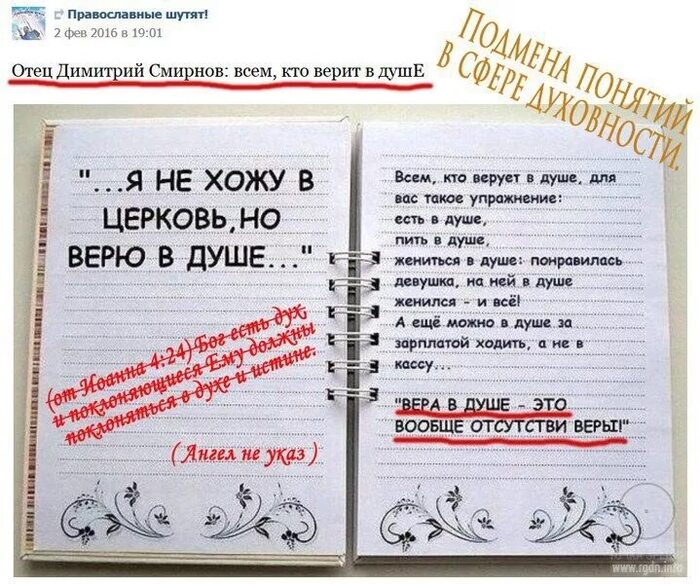 Православные шутят!
2 фев 2016 в 19:01
Отец Димитрий Смирнов: всем, кто верит в душЕ
ПОДМЕНА ПОНЯТИЙ
В СФЕРЕ ДУХОВНОСТИ.
"...Я НЕ ХОЖУ В
ЦЕРКОВЬ,НО
ВЕРЮ В ДУШЕ..."
(от Иоанна 4:24) Бог есть дух,
и поклоняющиеся Ему должны
поклоняться в духе и истине.
( Ангел не указ )
Всем, кто верует в душе, для
вас такое упражнение:
есть в душе,
пить в душе,
жениться в душе: понравилась
девушка, на ней в душе
женился - и всё!
А ещё можно в душе за
зарплатой ходить, а не в
кассу...
"ВЕРА В ДУШЕ - ЭТО
ВООБЩЕ ОТСУТСТВИ ВЕРЫ!"
www.rgdn.info